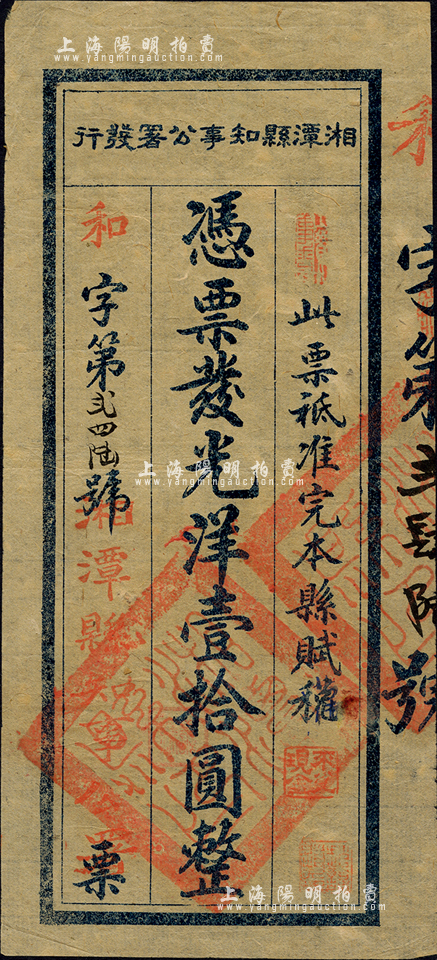 上海陽明拍賣
www.yangmingauction.com
湘潭縣知事公署發行
此票祗准完本縣賦稅
憑票發光洋壹拾圓整
和字第弍四陆號
湘潭縣知事公署
票
和字第
號
上海陽明拍賣
www.yangmingauction.com
上海陽明拍賣
www.yangmingauction.com